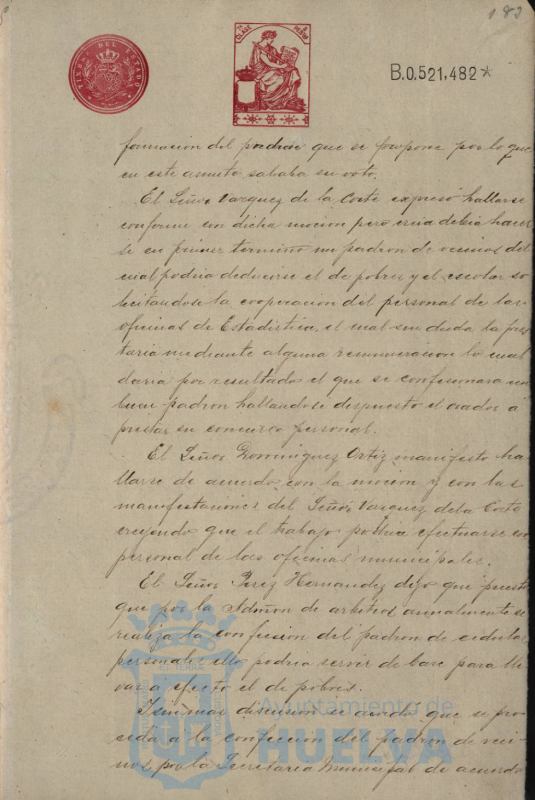 183
TIMBRE DEL ESTADO
CLASE
B.0.521,482*
formación del padrón que se propone por lo que
en este asunto salvaba su voto.
El Señor Vazquez de la Corte expresó hallarse
conforme con dicha mocion pero creia debia hacer
se en primer termino un padron de vecinos del
cual podria deducirse el de pobres y el escolar so
licitandose la cooperacion del personal de las
oficinas de Estadistica, el cual sin duda la pres
taria mediante alguna remuneracion lo cual
daria por resultados el que se confecionara un
buen padron hallandose dispuesto el orador á
prestar su concurso personal.
El Señor Dominguez Ortiz manifestó ha
llarse de acuerdo con la mocion y con las
manifestaciones del Señor Vazquez de la Corte
creyendo que el trabajo podria efectuarse con
personal de las oficinas municipales.
El Señor Perez Hernandez dijo que puesto
que por la Admon de arbitrios anualmente se
realiza la confecion del padron de cedulas
personales ello podria servir de base para lle
var a efecto el de pobres.
Y sin mas discusion se acordó que se pro
ceda á la confeccion del padron de veci-
nos por la Secretaria Municipal de acuerdo
Ayuntamiento de
HUELVA